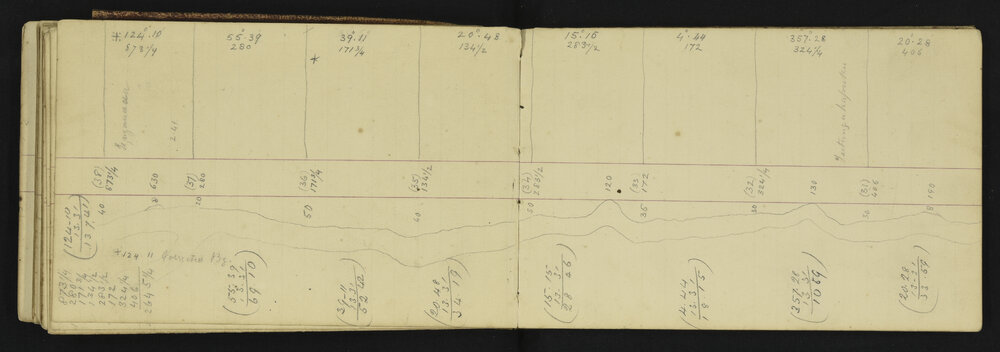 *124°.10
873 1/4
55°.39
280
39°.11
171 3/4
*
20°.48
134 1/2
15°.15
283 1/2
4°.44
172
357°.28
324 1/4
20°.28
406
241
(38)
873 1/4
630
(37)
280
(36)
171 3/4
(35)
134 1/2
(34)
283 1/2
120
(33)
172
(32)
324 1/4
130
(31)
406
190
40
8
20
50
60
50
36
30
30
8
(124-10
13.31
137.41)
*124 "
873 1/4
280
171 3/4
134 1/2
283 1/2
172
324 1/4
406
2645 1/4
(55.39
13.31
69 10)
(39-11
13.31
52 42)
(20.48
13 31
34 19)
(15.15
13.31
28 46)
(4.44
13.31
18 15)
(357.28
13 31
10 59)
(20.28
13-31
33.59)